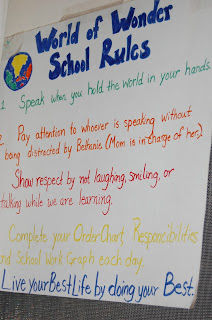 World of Wonder
School Rules
1. Speak when you hold the world in your hands.
2. Pay attention to whoever is speaking without
being distracted by Bethanie (Mom is in charge of her.)
Show respect by not laughing, smiling, or
talking while we are learning.
Complete your Order Chart, Responcibilities
and School Work Graph each day.
Live your Best Life by doing your Best.